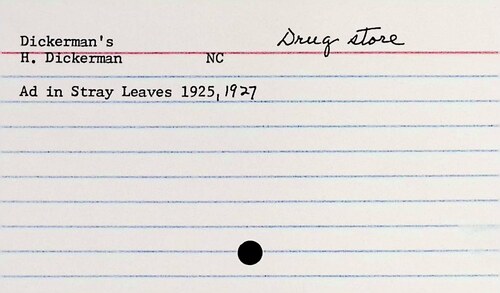 Dickerman's Drug store
H. Dickerman NC
Ad in Stray Leaves 1925, 1927